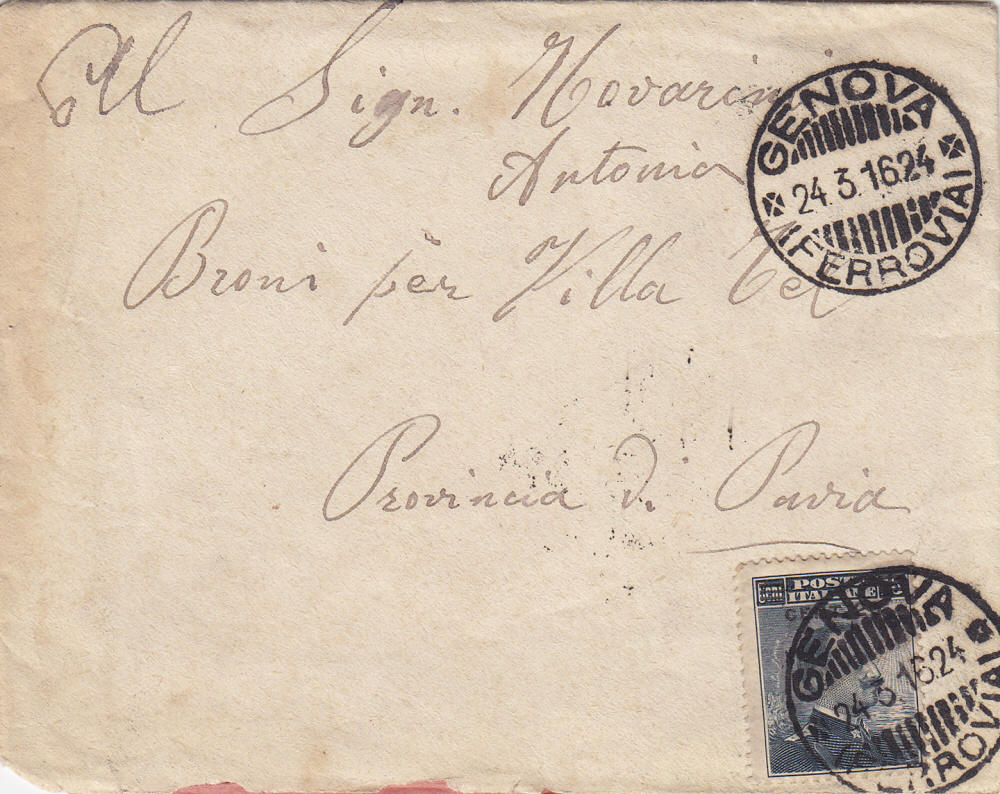 Al Sign. Novarini
Antonia
Broni per Villa
Provincia di Pavia
GENOVA
24.3.16.24
FERROVIA
POSTE
ITALIANE
GENOVA
24.3.16.24
FERROVIA